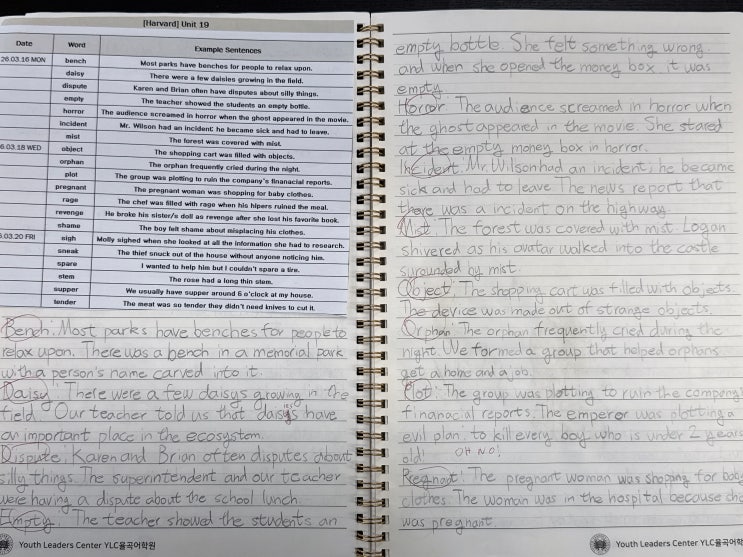 [Harvard] Unit 19
Date Word Example Sentences
26.03.16 MON bench Most parks have benches for people to relax upon.
daisy There were a few daisies growing in the field.
dispute Karen and Brian often have disputes about silly things.
empty The teacher showed the students an empty bottle.
horror The audience screamed in horror when the ghost appeared in the movie.
incident Mr. Wilson had an incident; he became sick and had to leave.
mist The forest was covered with mist.
6.03.18 WED object The shopping cart was filled with objects.
orphan The orphan frequently cried during the night.
plot The group was plotting to ruin the company's finanacial reports.
pregnant The pregnant woman was shopping for baby clothes.
rage The chef was filled with rage when his hlpers ruined the meal.
revenge He broke his sister/s doll as revenge after she lost his favorite book.
shame The boy felt shame about misplacing his clothes.
6.03.20 FRI sigh Molly sighed when she looked at all the information she had to research.
sneak The thief snuck out of the house without anyone noticing him.
spare I wanted to help him but I couldn't spare a tire.
stem The rose had a long thin stem.
supper We usually have supper around 6 o'clock at my house.
tender The meat was so tender they didn't need knives to cut it.
Bench: Most parks have benches for people to
relax upon. There was a bench in a memorial park
with a person's name carved into it.
Daisy: There were a few daisys growing in the
field. Our teacher told us that daisys have
an important place in the ecosystem.
Dispute: Karen and Brian often disputes about
silly things. The superintendent and our teacher
were having a dispute about the school lunch.
Empty: The teacher showed the students an
Youth Leaders Center YLC율곡어학원
empty bottle. She felt something wrong.
and when she opened the money box, it was
empty.
Horror: The audience screamed in horror when
the ghost appeared in the movie. She stared
at the empty money box in horror.
Incident: Mr. Wilson had an incident; he became
sick and had to leave. The news report that
there was a incident on the highway.
Mist: The forest was covered with mist. Logan
shivered as his avatar walked into the castle
surounded by mist.
Object: The shopping cart was filled with objects.
The device was made out of strange objects.
Orphan: The orphan frequently cried during the
night. We formed a group that helped orphans
get a home and a job.
Plot: The group was plotting to ruin the company'
finanacial reports. The emperor was plotting a
evil plan: to kill every boy who is under 2 years
old! OH NO!
Pregnant: The pregnant woman was shopping for baby
clothes. The woman was in the hospital because she
was pregnant.
Youth Leaders Center YLC율곡어학